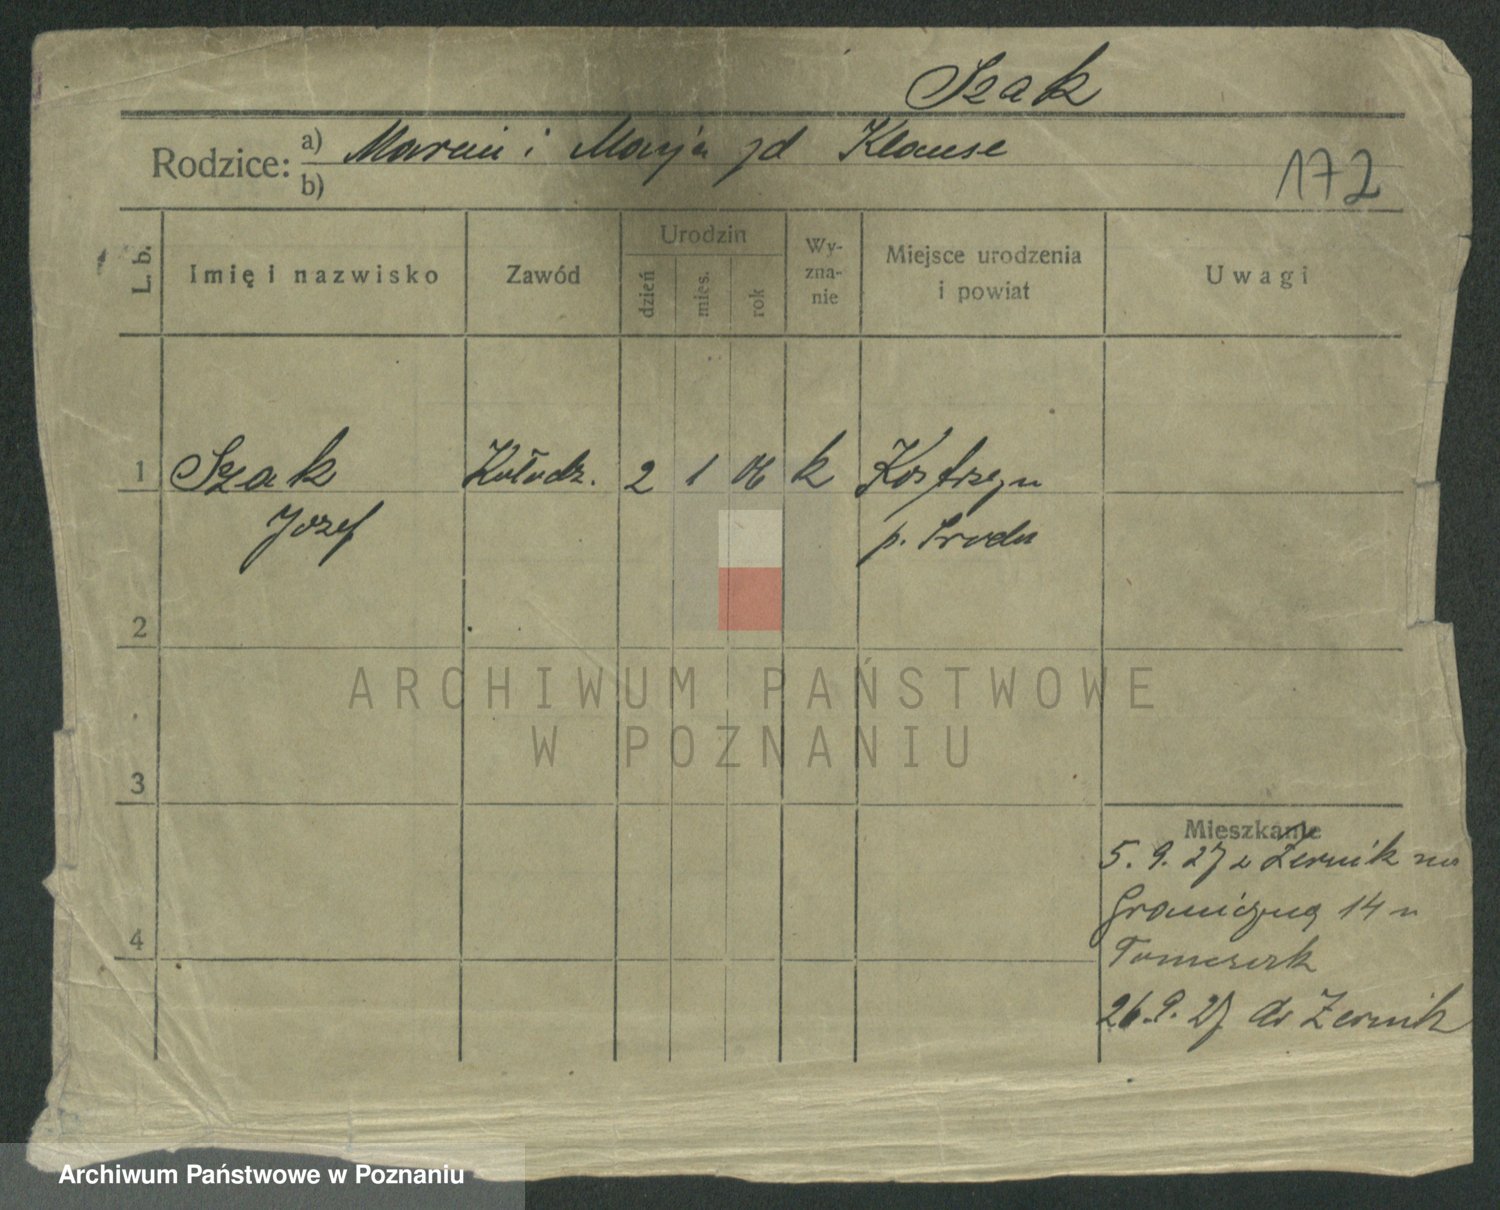 Szak
Rodzice: a) Marcin i Marja zd Klause
b)
172
L. b.
Imię i nazwisko
Zawód
Urodzin
dzień
mies.
rok
Wy-
zna-
nie
Miejsce urodzenia
i powiat
Uwagi
1 Szak Kołodz. 2 1 06 k Kostrzyn
Jozef p. Środa
2
3
4
ARCHIWUM PAŃSTWOWE
W POZNANIU
Mieszkanie
5. 9. 27 z Żernik na
Graniczną 14 u
26. 9. 27 do Żernik
Archiwum Państwowe w Poznaniu